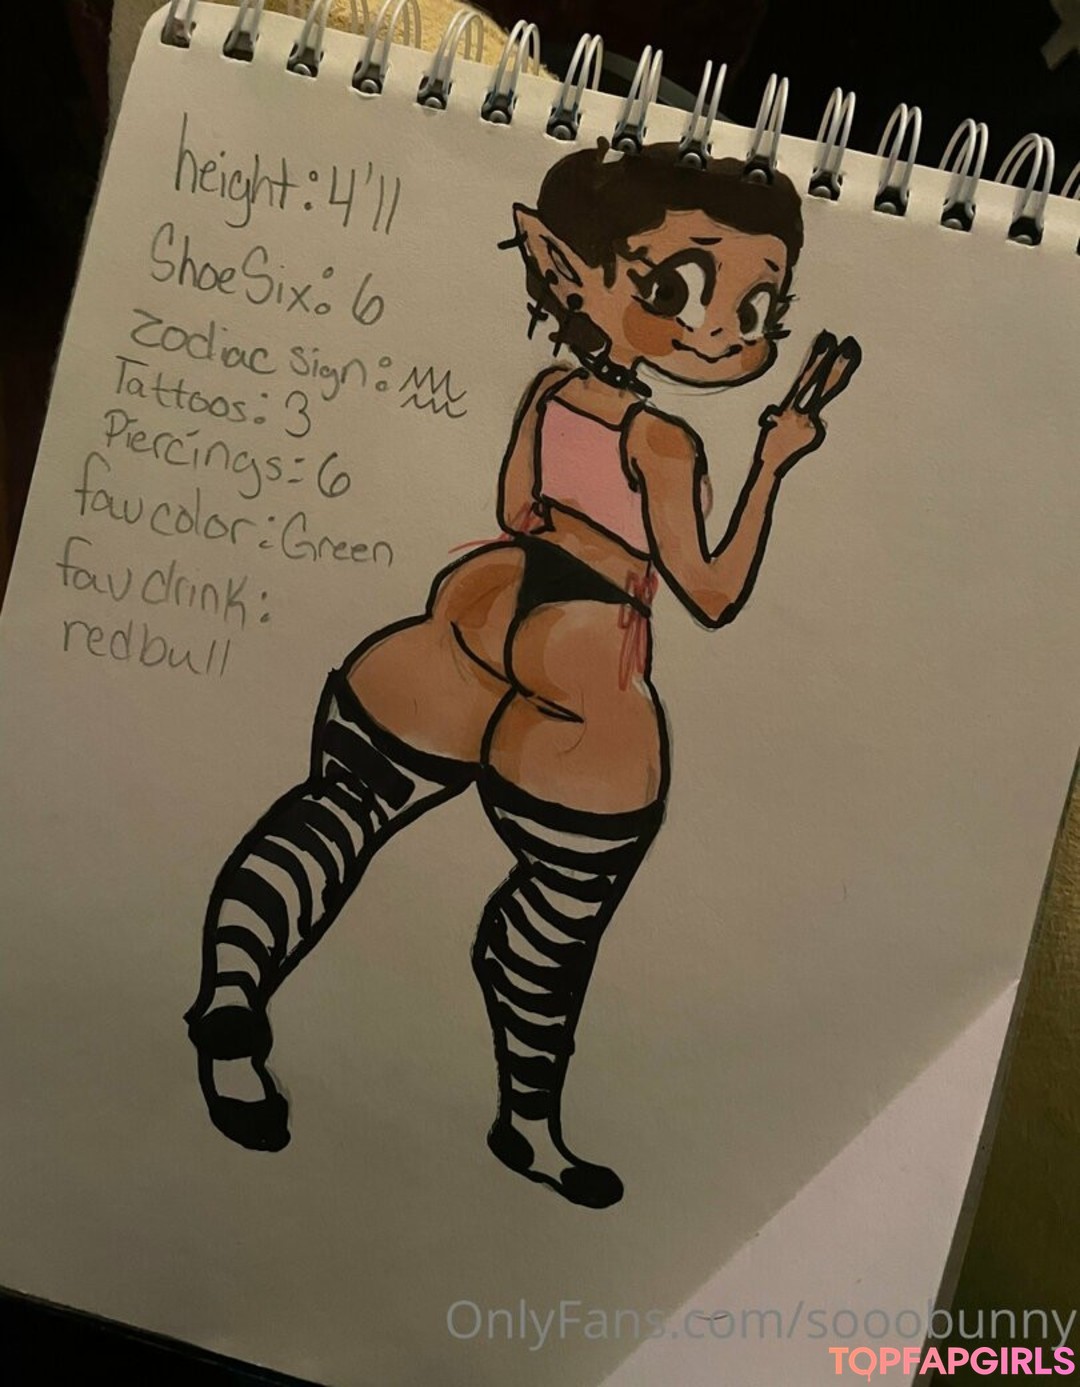 height: 4'11
Shoe Six: 6
zodiac sign: ♒
Tattoos: 3
Piercings: 6
fav color: Green
fav drink:
redbull
OnlyFans.com/sooobunny
TOPFAPGIRLS